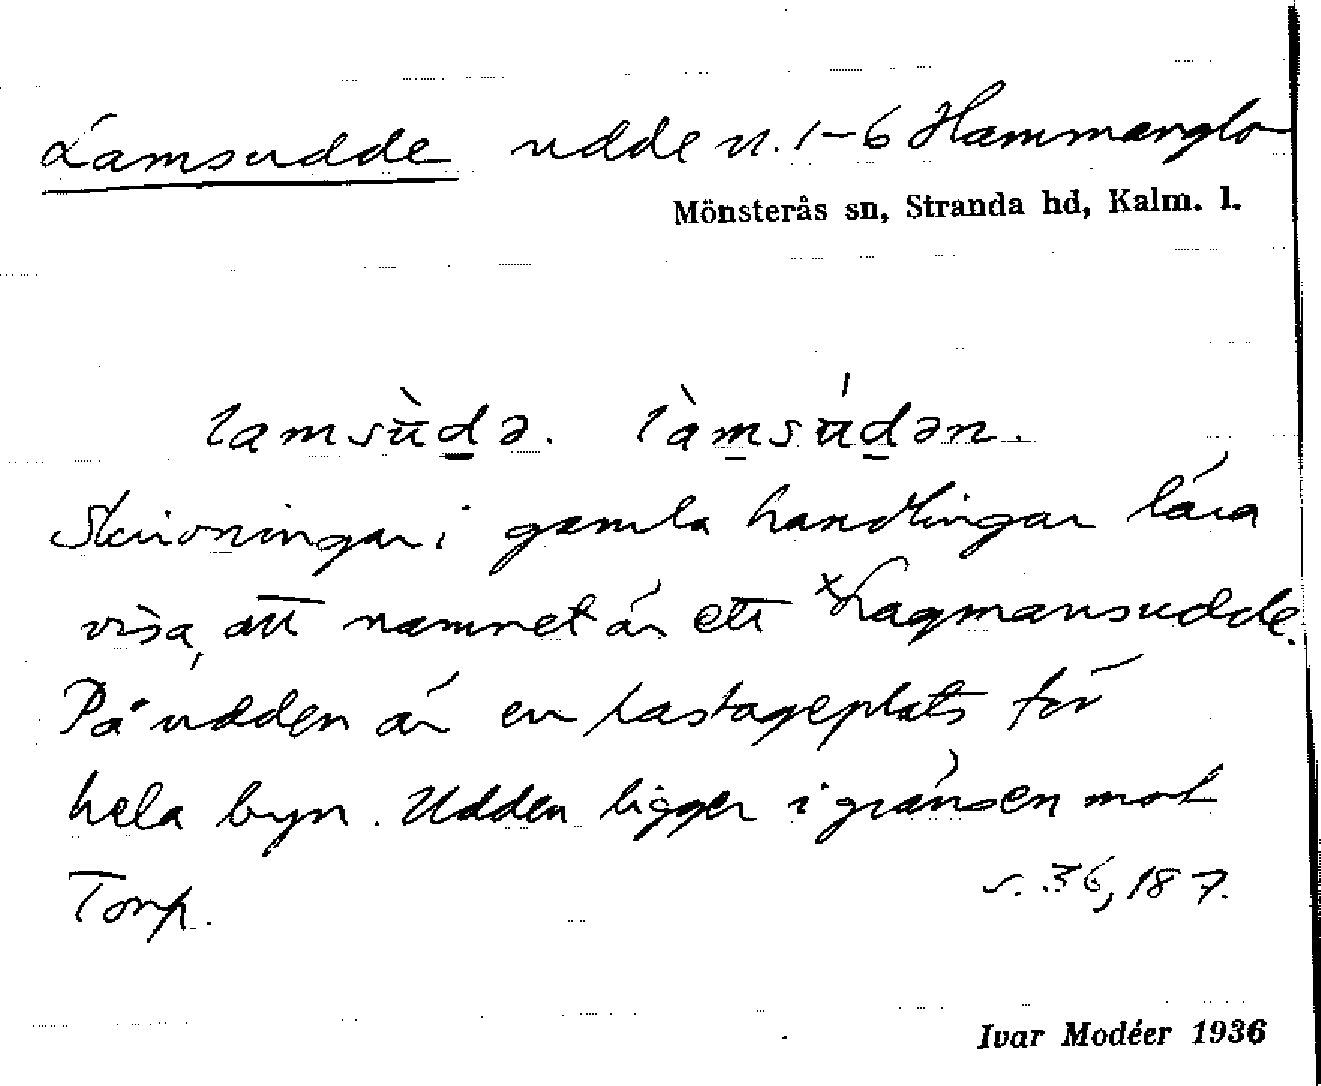 Lamsudde udde n. 1-6 Hammarglo
Mönsterås sn, Stranda hd, Kalm. l.
lamsùdə. làmsúdən.
Skrivningar i gamla handlingar lära
visa, att namnet är ett ˣLagmansudde.
På udden är en lastageplats för
hela byn. Udden ligger i gränsen mot
Torp.
s. 36, 187.
Ivar Modéer 1936